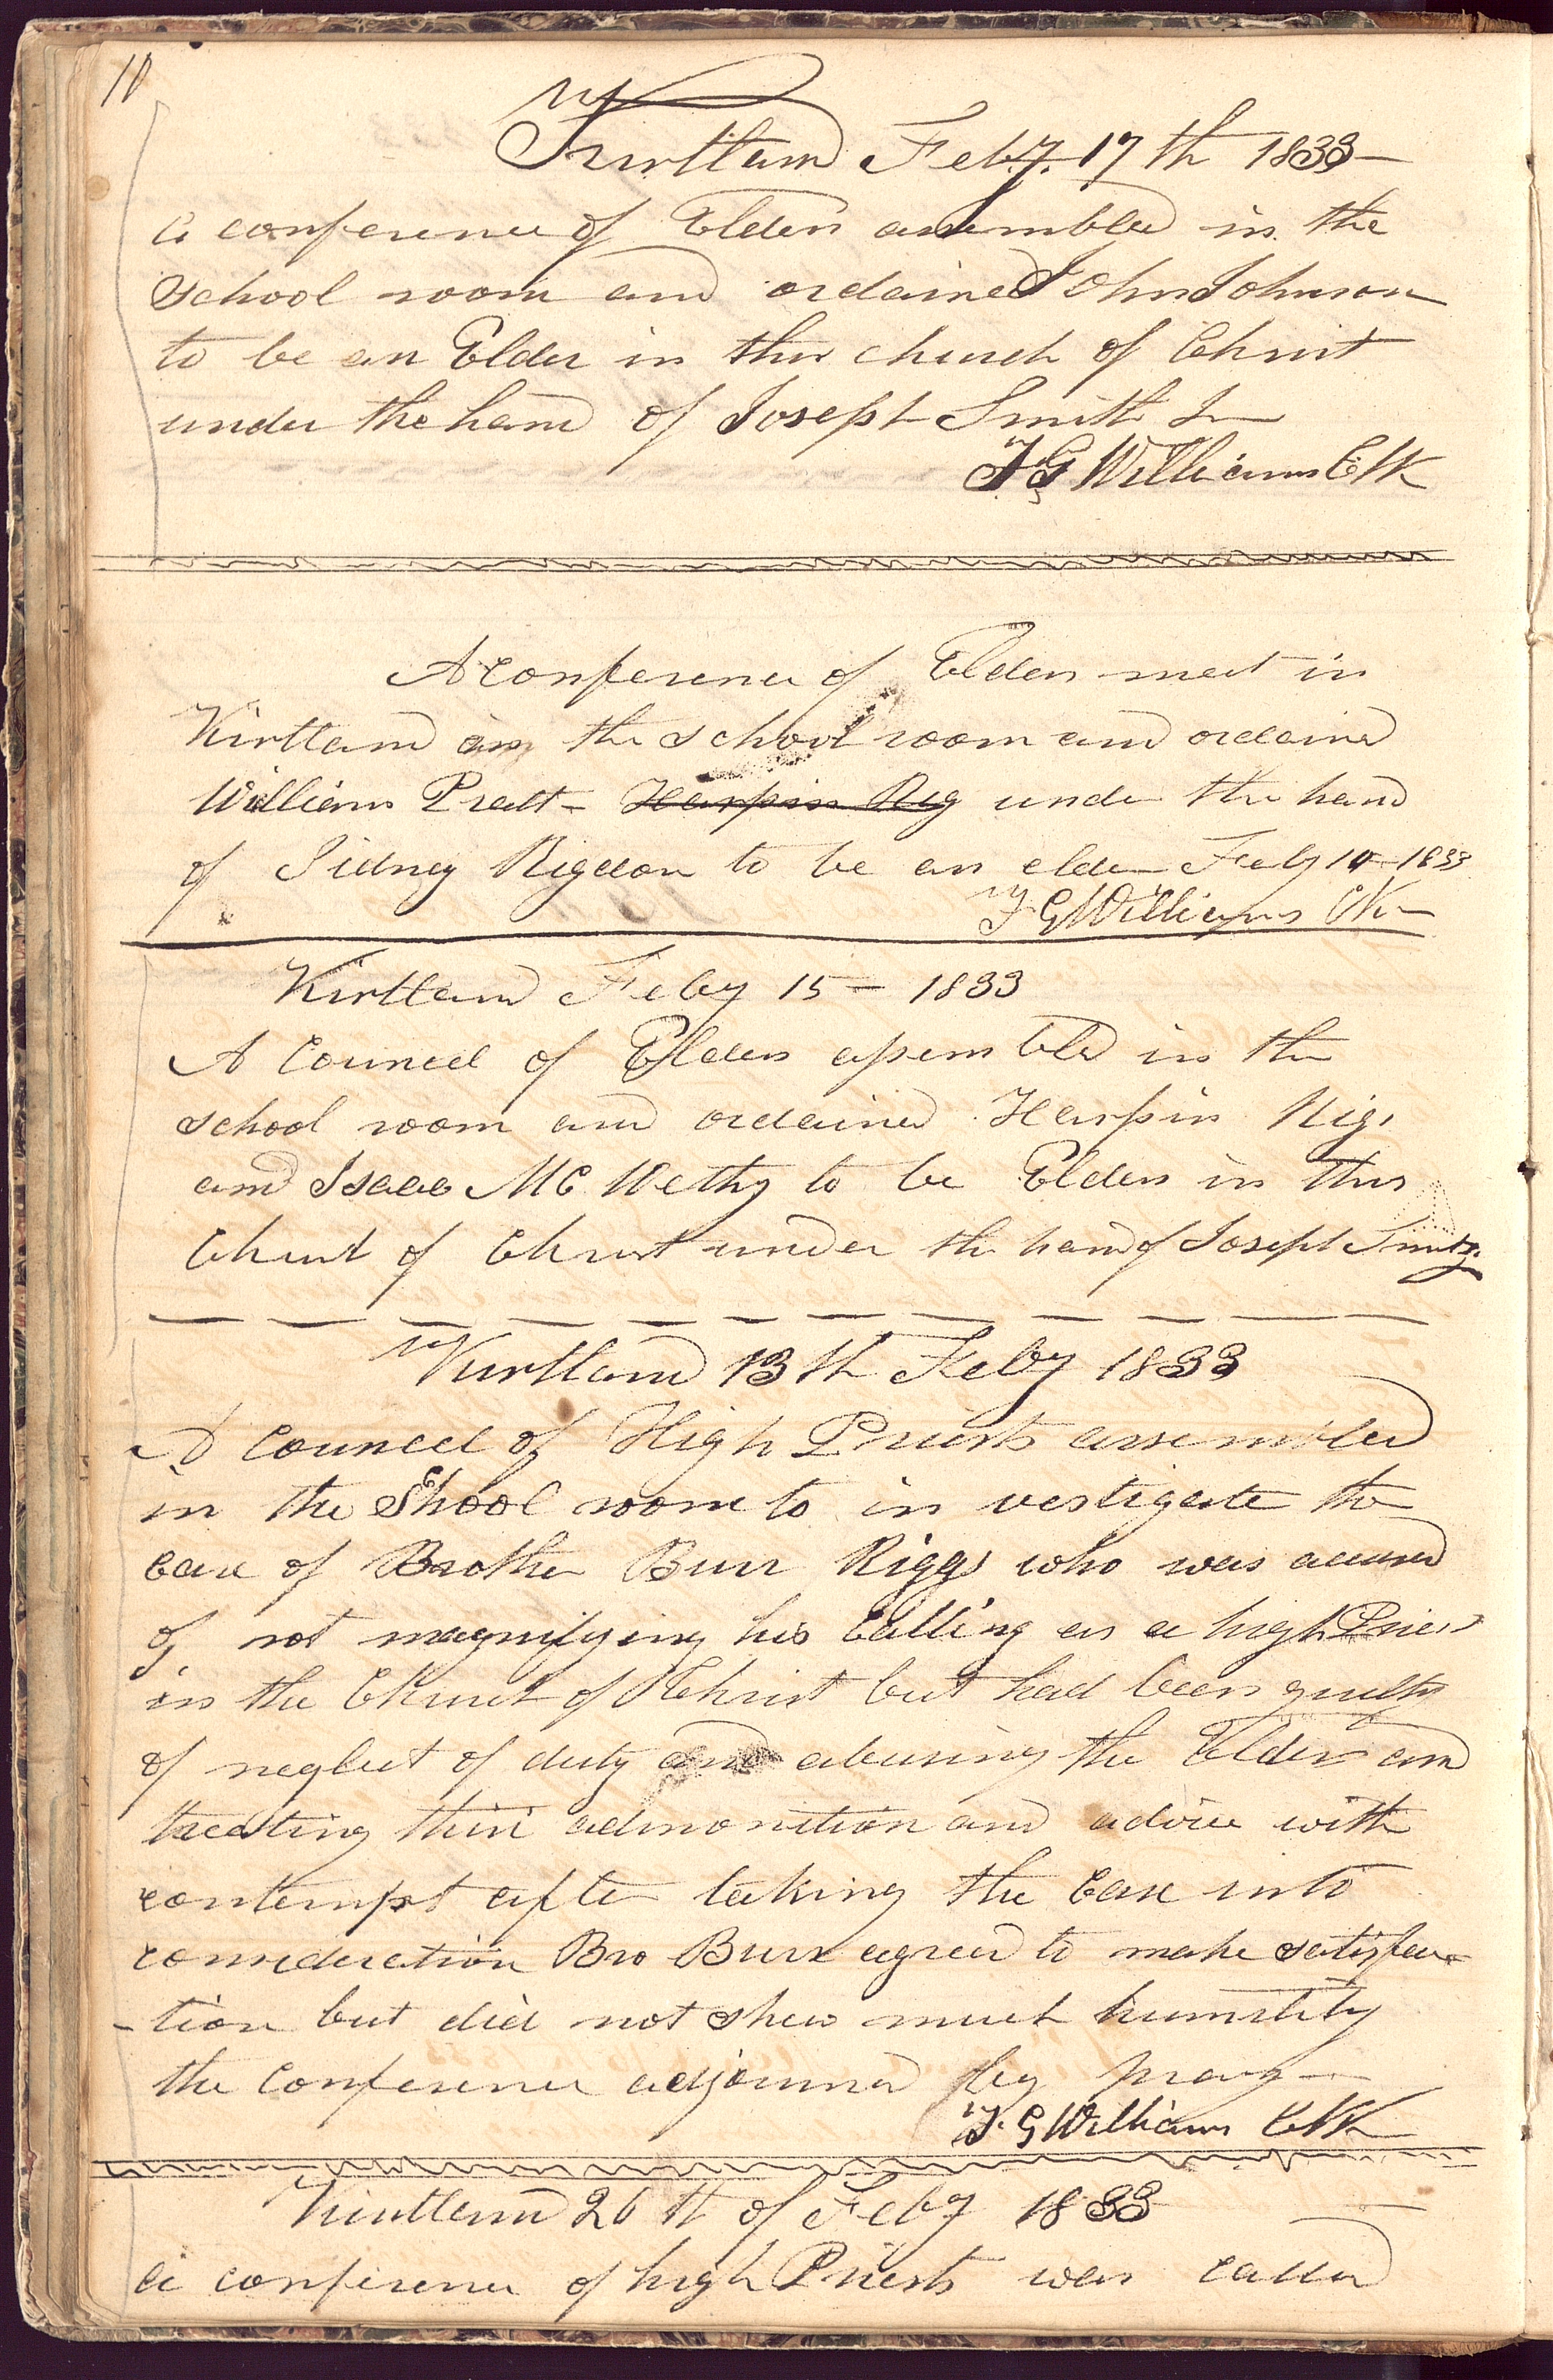 10
Kirtland Feby. 17th 1833—
a conference of Elders assembled in the
School room and ordained John Johnson
to be an Elder in this church of Christ
under the hand of Joseph Smith Jr
F G Williams Clk
A conference of Elders met in
Kirtland in the school room and ordained
William Pratt - Harpin Rig under the hand
of Sidney Rigdon to be an elder Feby 10 - 1833
F G Williams Clk
Kirtland Feby 15 — 1833
A Councel of Elders assembled in the
school room and ordained Harpin Rigs
and Isaac McWethy to be Elders in this
Church of Christ under the hand of Joseph Smith Jr.
Kirtland 13th Feby 1833
A councel of High Priests assembled
in the Shool room to in vestigate the
case of Brother Burr Riggs who was accused
of not magnifying his calling as a high Priest
in the Church of Christ but had been guilty
of neglect of duty and abusing the Elders and
treating their admonition and advice with
contempt after taking the case into
consideration Bro Burr agreed to make satisfac-
-tion but did not shew much humility
the conference adjourned by pray—
F. G Williams Clk
Kirtland 26th of Feby 1833
a conference of high Priests was called